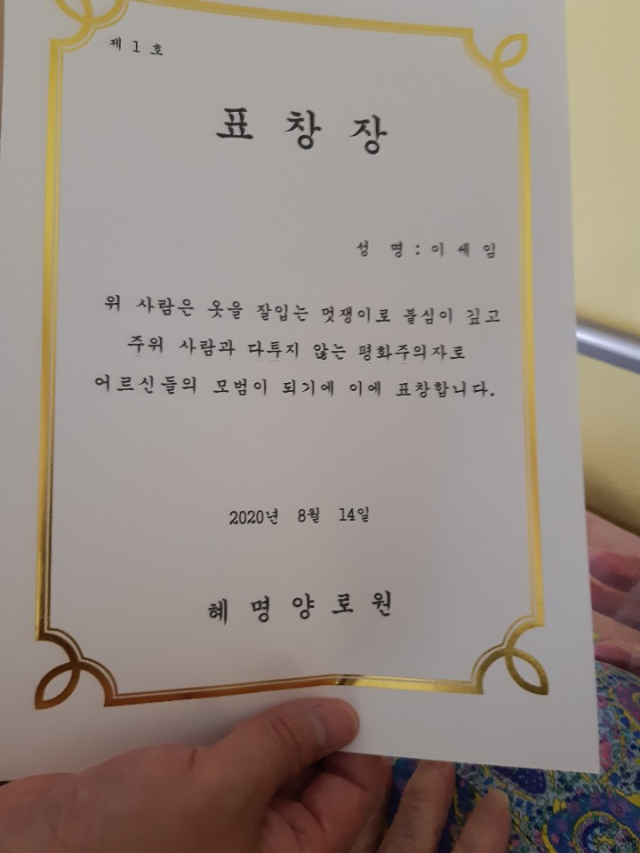 제 1 호
표 창 장
성 명 : 이 세 임
위 사람은 옷을 잘입는 멋쟁이로 불심이 깊고
주위 사람과 다투지 않는 평화주의자로
어르신들의 모범이 되기에 이에 표창합니다.
2020년 8월 14일
혜 명 양 로 원